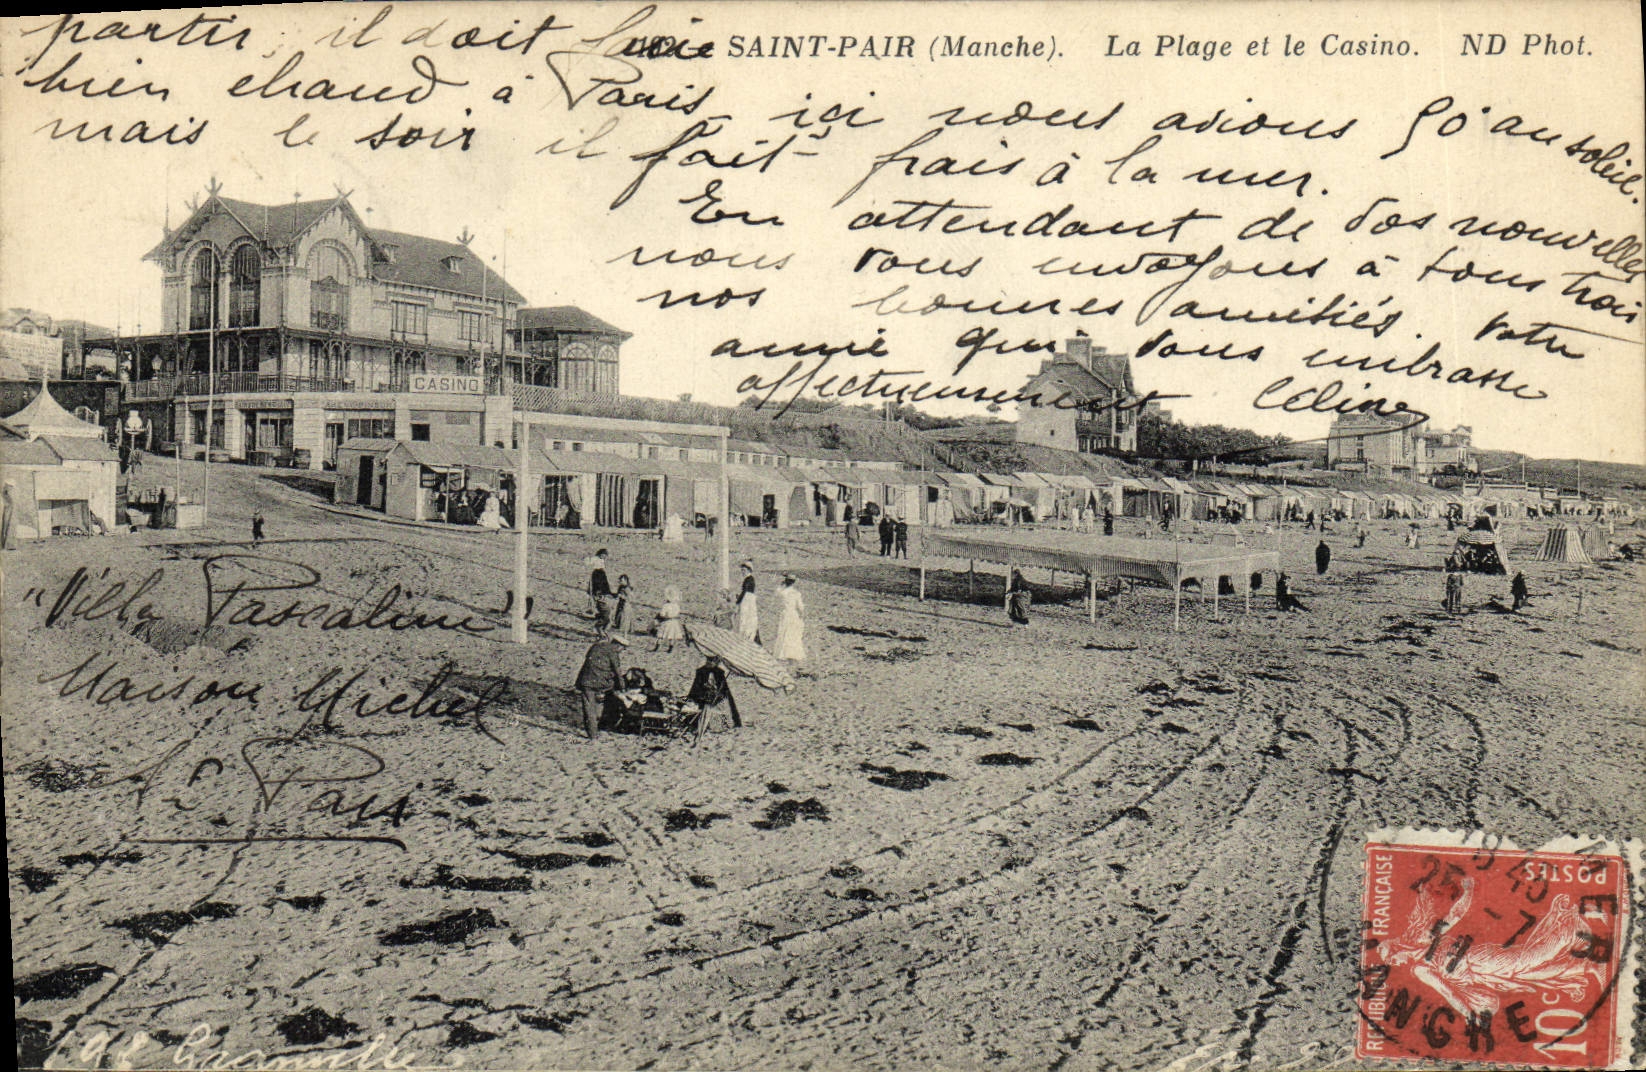 partir, il doit faire SAINT-PAIR (Manche). La Plage et le Casino. ND Phot.
bien chaud à Paris, ici nous avions 50° au soleil.
mais le soir il fait frais à la mer.
En attendant de vos nouvelles
nous vous envoyons à tous trois
nos bonnes amitiés. Votre
amie qui vous embrasse
affectueusement Céline
CASINO
"Villa Pascaline"
Maison Michel
St Pair
Granville
RÉPUBLIQUE FRANÇAISE
POSTES
10c
25 - 7
11
MER
MANCHE